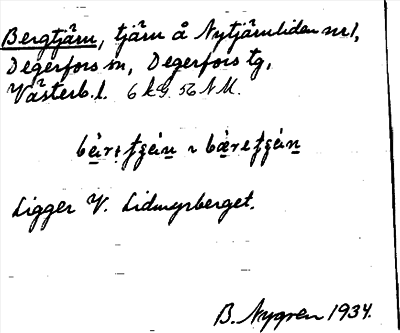 Bergtjärn, tjärn å Nytjärnliden nr 1,
Degerfors sn, Degerfors tg,
Västerb. l. 6 kg. 56 N M.
Ligger V. Lidmyrberget.
B. Nygren 1934.